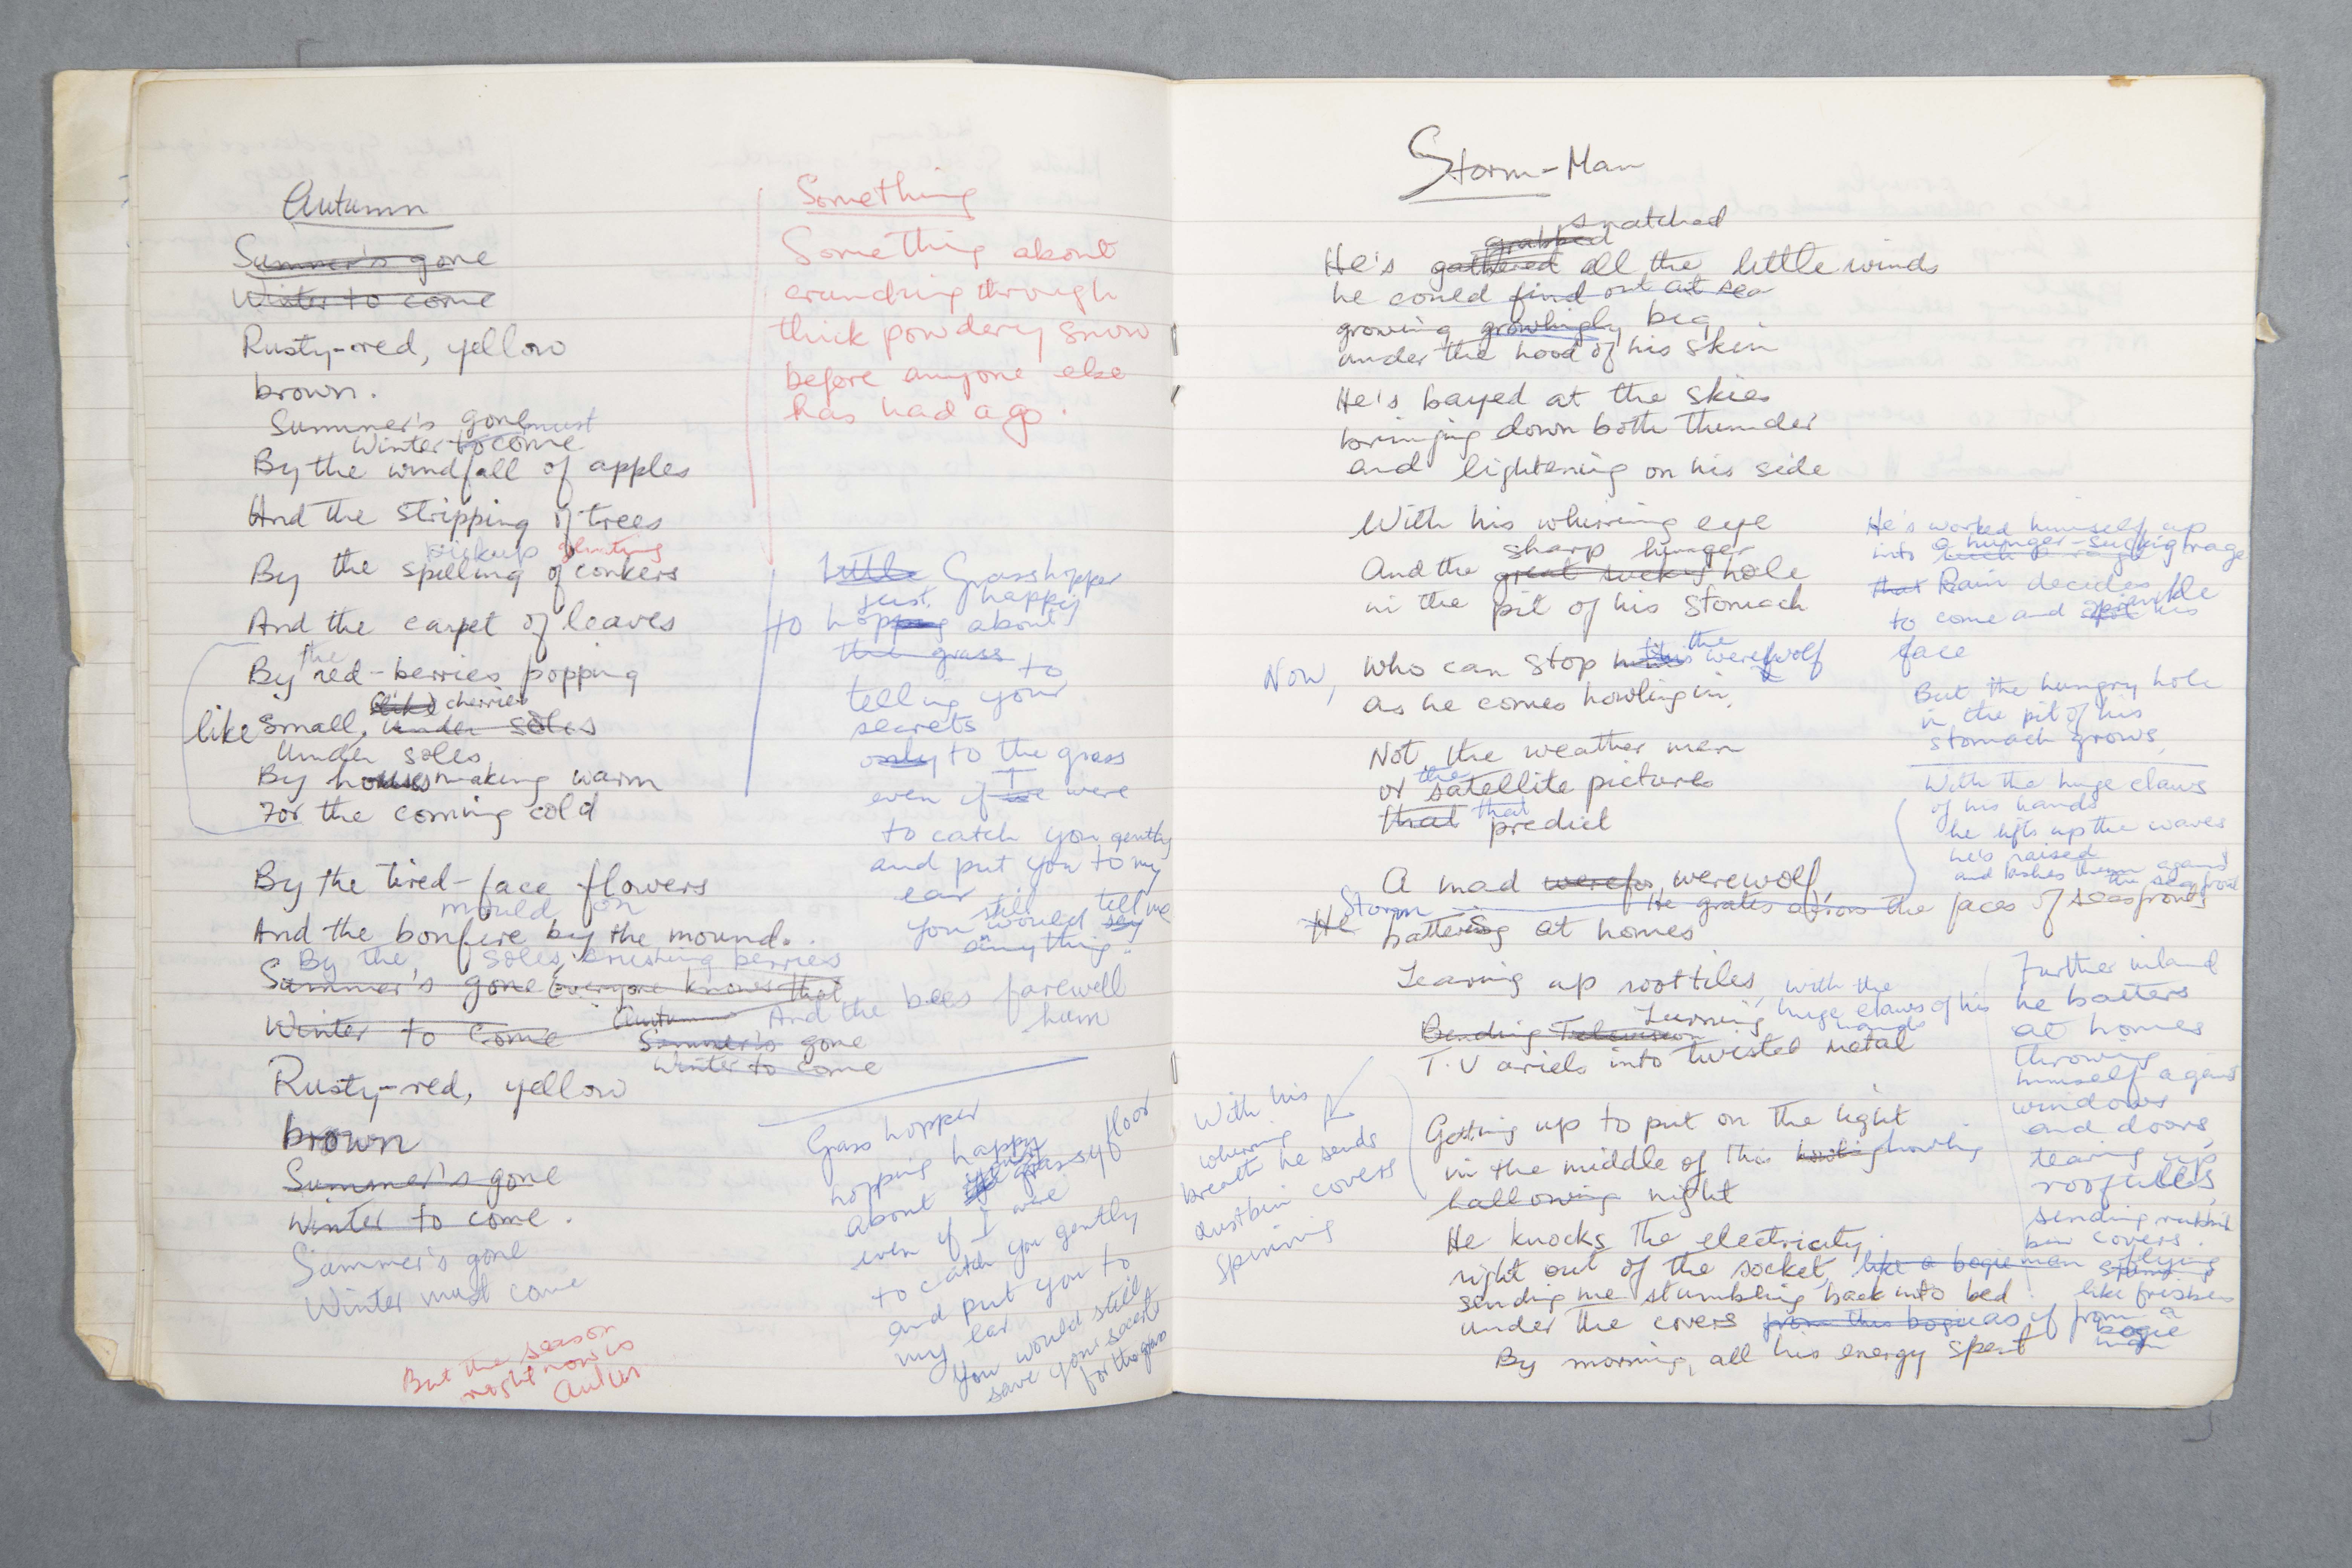 Autumn
Summer's gone
Winter to come
Rusty-red, yellow
brown.
Summer's gone must
Winter to come
By the windfall of apples
And the stripping of trees
pickup
By the spilling of conkers
And the carpet of leaves
the
By red-berries popping
like cherries
like small, under soles
Under soles
By houses making warm
For the coming cold
By the tired-face flowers
mould on
And the bonfire by the mound.
By the, soles, crushing berries
Summer's gone Everyone knows that
Winter to come Autumn And the bees farewell
hum
Summer's gone
Winter to come
Rusty-red, yellow
brown
Summer's gone
Winter to come.
Summer's gone
Winter must come
But the season
right now is
Something
Something about
crunching through
thick powdery snow
before anyone else
has had a go.
Little Grasshopper
just happy
to hopping about
the grass to
telling your
secrets
only to the grass
I
even if we were
to catch you gently
and put you to my
ear
still tell me
you would say
anything.
Grass hopper
hopping happy
about grassy floor
even if I were
to catch you gently
and put you to
my ear
you would still
save your secrets
for the grass
Storm-Man
snatched
grabbed
He's gathered all the little winds
he could find out at sea
growing growlingly big
under the hood of his skin
He's bayed at the skies
bringing down both thunder
and lightening on his side
With his whirring eye
sharp hunger
And the great sucking hole
in the pit of his stomach
the
Now, who can stop this werewolf
as he comes howling in,
Not the weather man
the
or satellite pictures
that that predict
A mad werefox, werewolf,
He grates across the faces of seafronts
Storm
He battering at homes
Tearing up rooftiles, with the
huge claws of his
hands
Turning
Bending Television
T.V ariels into twisted metal
Getting up to put on the light
in the middle of this howling howling
hallowing night
He knocks the electricity
right out of the socket, like a bogie man
sending me stumbling back into bed
under the covers from this bogie as if from a
bogie
By morning, all his energy spent
He's worked himself up
into a hunger-sucking rage
that Rain decides
to come and sprinkle his
face
But the hungry hole
in the pit of his
stomach grows,
With the huge claws
of his hands
he lifts up the waves
he's raised
and lashes them against
the sea front
Further inland
he batters
at homes
throwing
himself against
windows
and doors,
tearing up
rooftiles,
sending rubbish
bin covers
flying
spinning
like frisbees
With his
whirring
breath he sends
dustbin covers
spinning